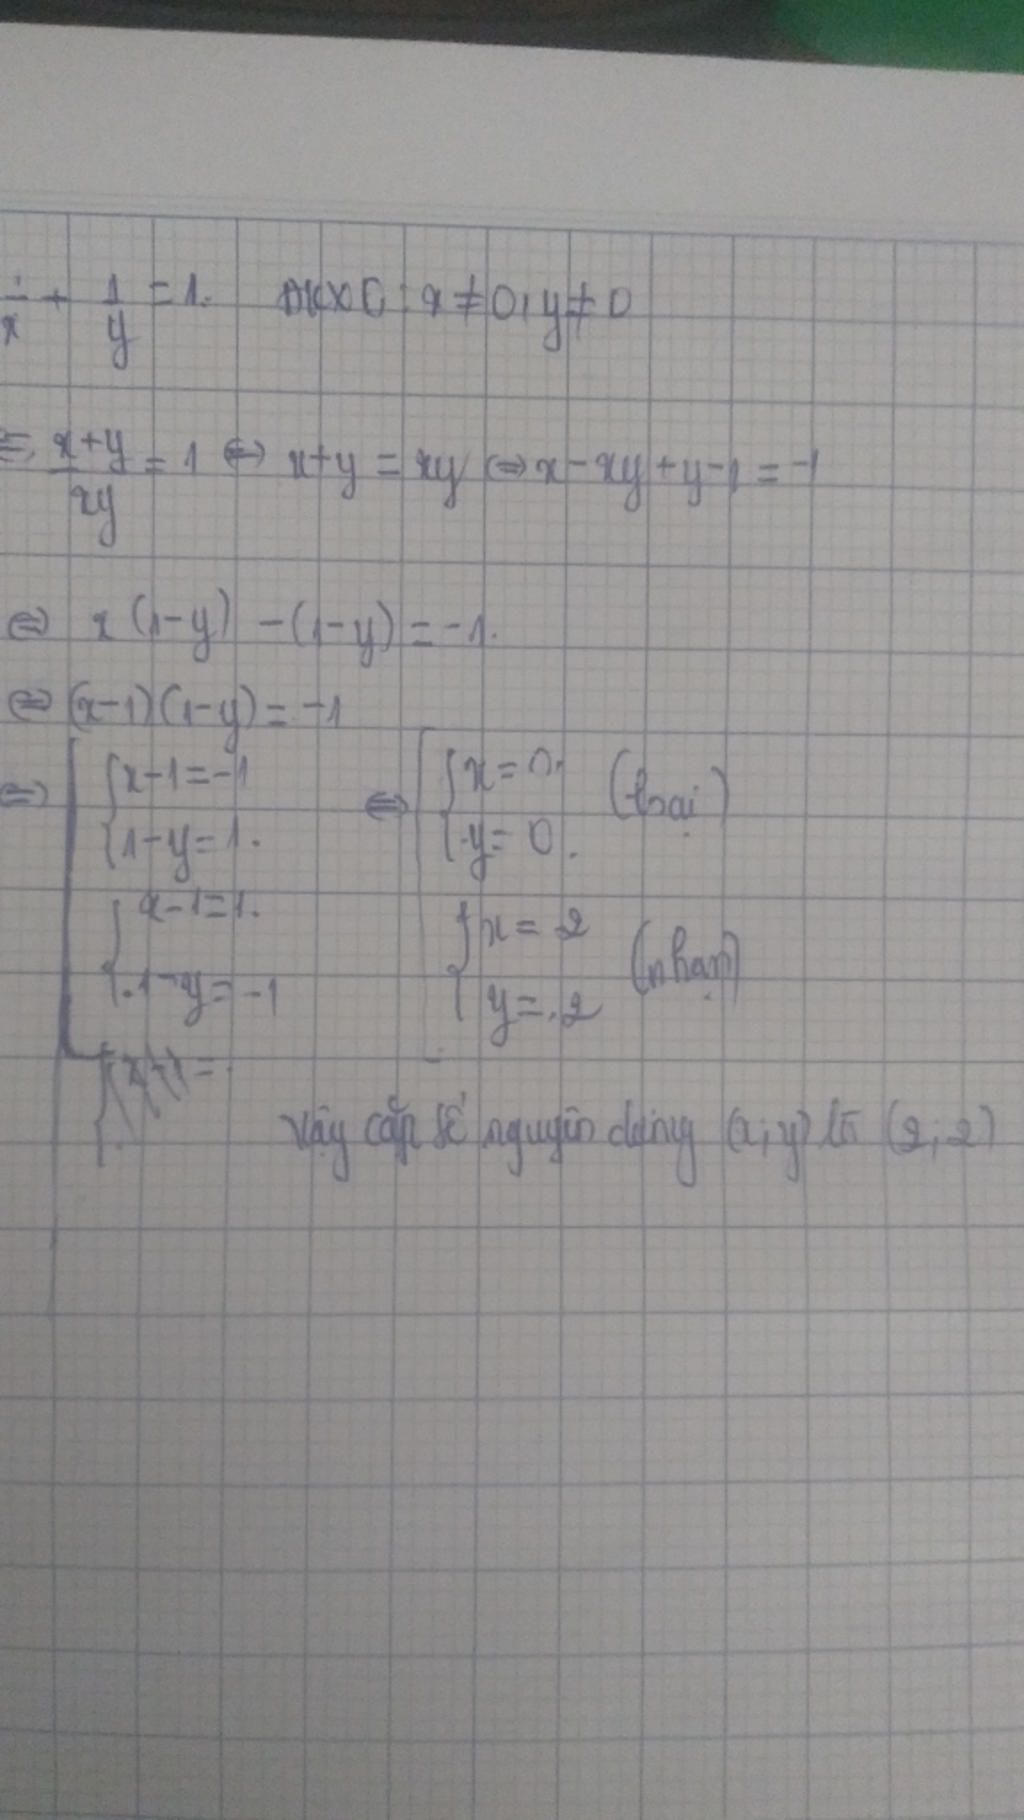 1/x + 1/y = 1. ĐKXĐ : x ≠ 0, y ≠ 0
⇔ x+y/xy = 1 ⇔ x+y = xy ⇔ x - xy + y - 1 = -1
⇔ x(1-y) - (1-y) = -1.
⇔ (x-1)(1-y) = -1
⇔ [ { x-1 = -1 ⇔ [ { x = 0. (loại)
1-y = 1. y = 0.
{ x-1 = 1. { x = 2 (nhận)
1-y = -1 y = 2
Vậy cặp số nguyên dương (x;y) là (2;2)